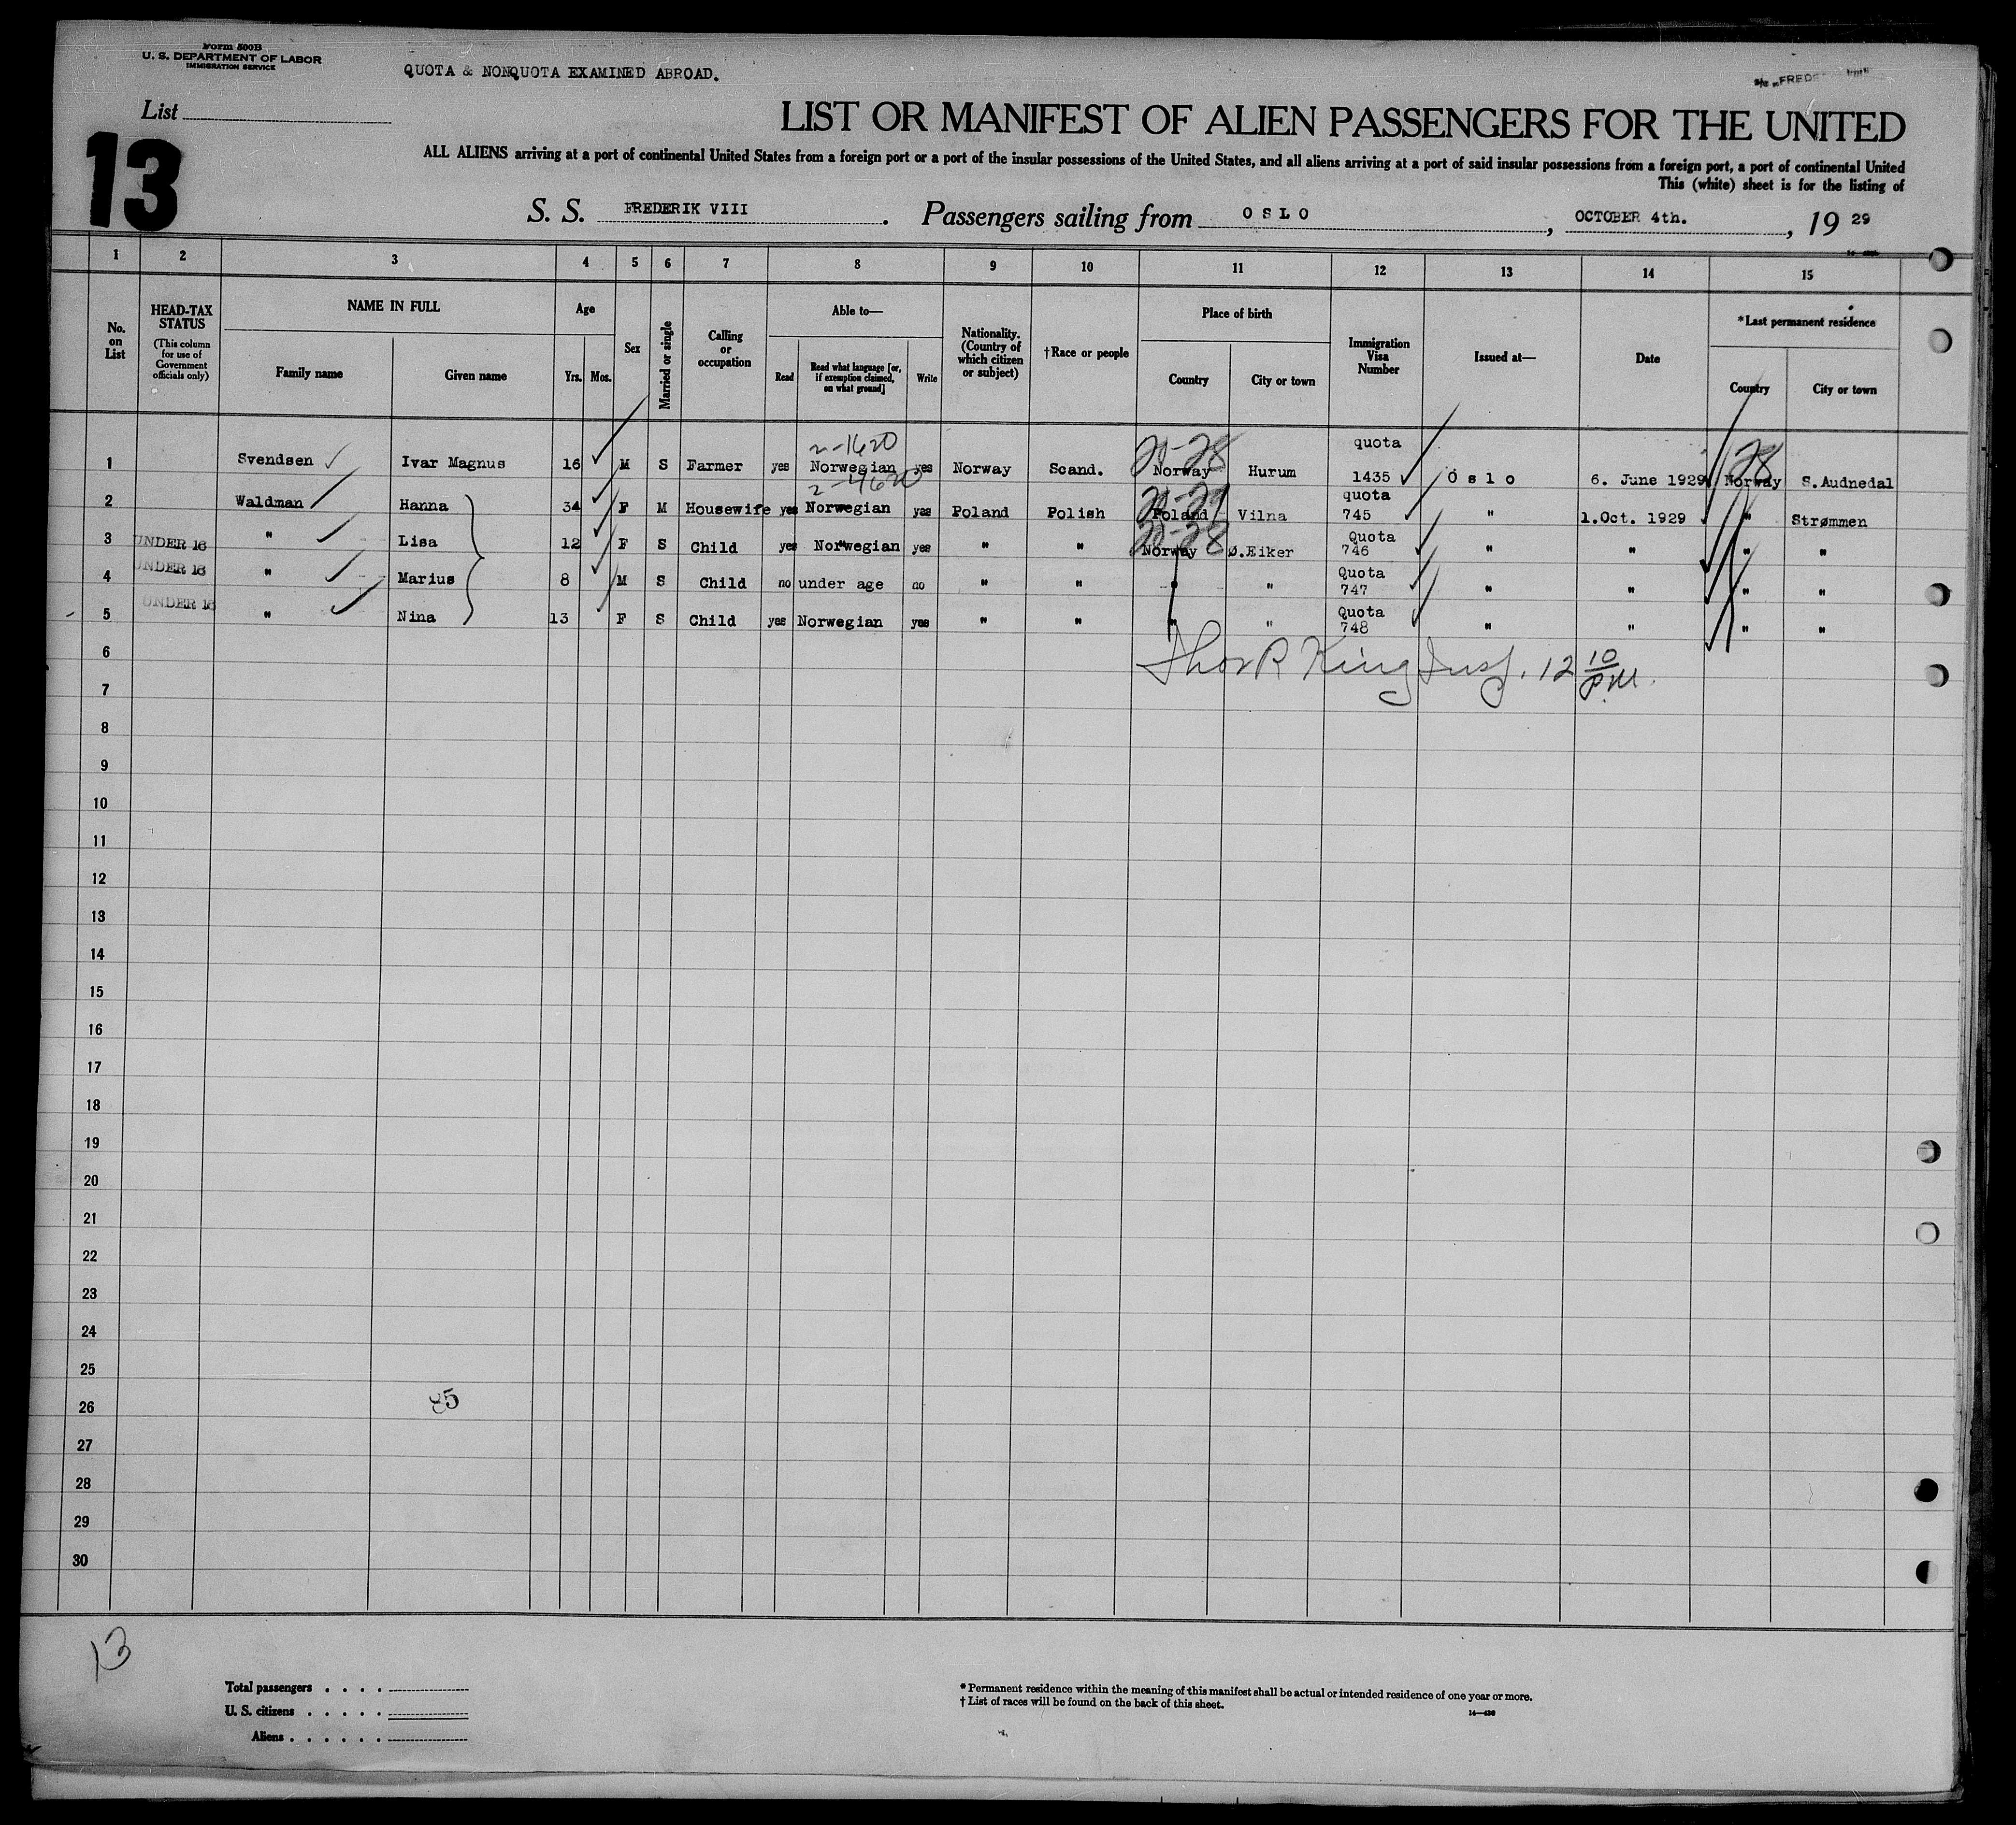 Form 500B
U. S. DEPARTMENT OF LABOR
IMMIGRATION SERVICE
QUOTA & NONQUOTA EXAMINED ABROAD.
List
13
LIST OR MANIFEST OF ALIEN PASSENGERS FOR THE UNITED
ALL ALIENS arriving at a port of continental United States from a foreign port or a port of the insular possessions of the United States, and all aliens arriving at a port of said insular possessions from a foreign port, a port of continental United
This (white) sheet is for the listing of
S. S. FREDERIK VIII. Passengers sailing from OSLO, OCTOBER 4th., 19 29
1 2 3 4 5 6 7 8 9 10 11 12 13 14 15
No. on List
HEAD-TAX STATUS (This column for use of Government officials only)
NAME IN FULL
Family name Given name
Age
Yrs. Mos.
Sex
Married or single
Calling or occupation
Able to—
Read
Read what language [or, if exemption claimed, on what ground]
Write
Nationality. (Country of which citizen or subject)
†Race or people
Place of birth
Country City or town
Immigration Visa Number
Issued at—
Date
*Last permanent residence
Country City or town
2-1620 20-28 quota 28
1 Svendsen Ivar Magnus 16 M S Farmer yes Norwegian yes Norway Scand. Norway Hurum 1435 Oslo 6. June 1929 Norway S.Audnedal
2-4620 quota
2 Waldman Hanna 34 F M Housewife yes Norwegian yes Poland Polish Poland Vilna 745 " 1.Oct. 1929 " Strømmen
20-28 Quota
3 UNDER 16 " Lisa 12 F S Child yes Norwegian yes " " Norway Ø.Eiker 746 " " " "
Quota
4 UNDER 16 " Marius 8 M S Child no under age no " " " " 747 " " " "
Quota
5 UNDER 16 " Nina 13 F S Child yes Norwegian yes " " " " 748 " " " "
6
Thos R King Insp. 12 10 P.M.
7
8
9
10
11
12
13
14
15
16
17
18
19
20
21
22
23
24
25
26
85
27
28
29
30
13
Total passengers
U. S. citizens
Aliens
* Permanent residence within the meaning of this manifest shall be actual or intended residence of one year or more.
† List of races will be found on the back of this sheet.